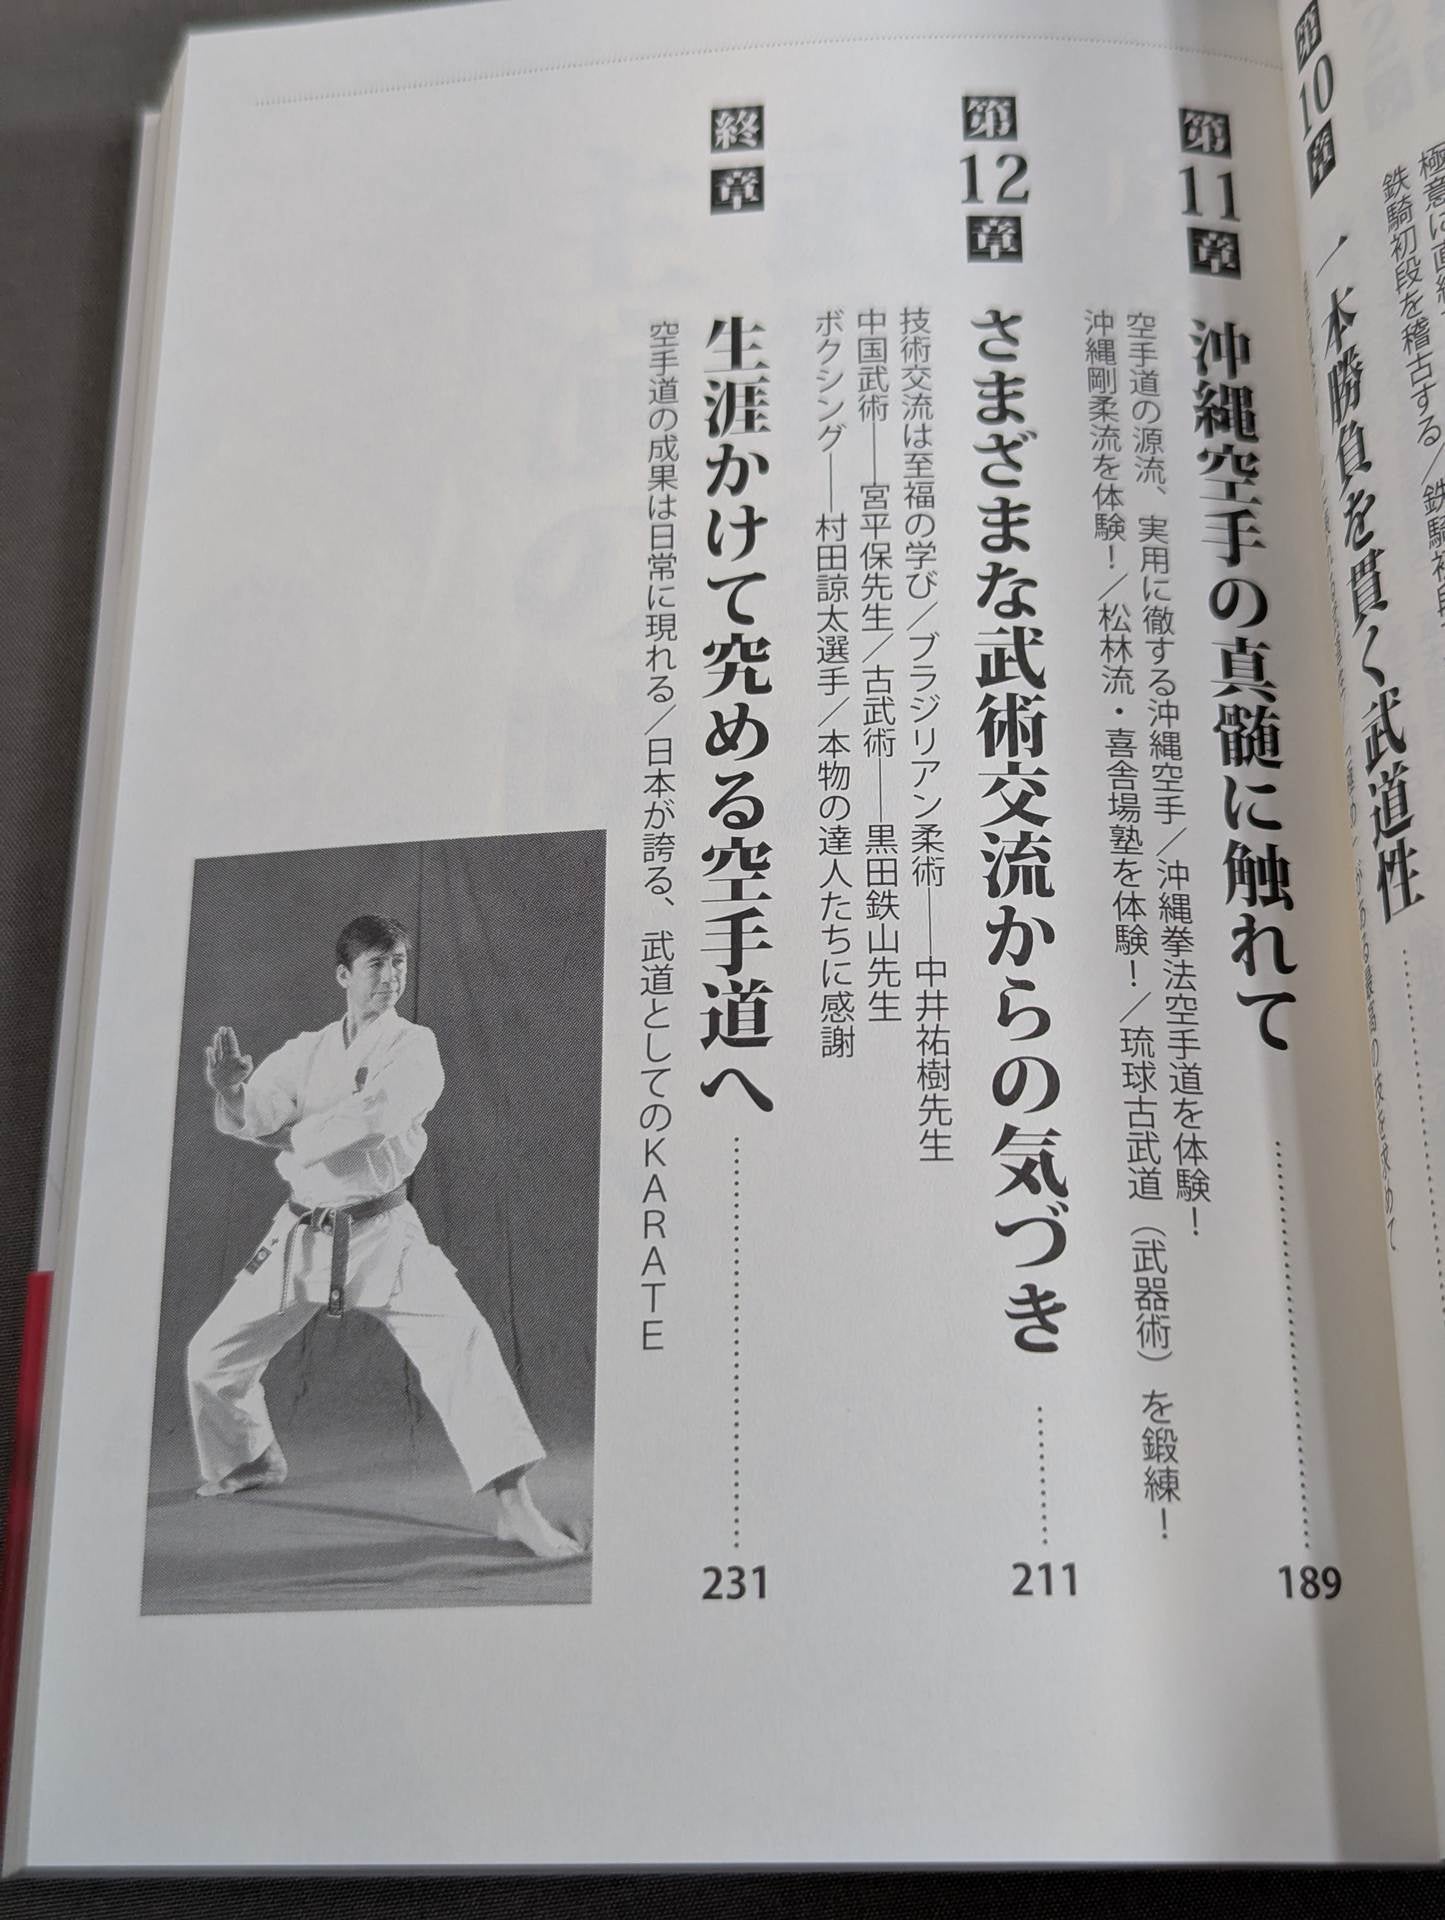 極意に直結
鉄騎初段を稽古する／鉄騎初段
第10章
一本勝負を貫く武道性
がある最高の技を求めて
第11章
沖縄空手の真髄に触れて
189
空手道の源流、実用に徹する沖縄空手／沖縄拳法空手道を体験！
沖縄剛柔流を体験！／松林流・喜舎場塾を体験！／琉球古武道（武器術）を鍛練！
第12章
さまざまな武術交流からの気づき
211
技術交流は至福の学び／ブラジリアン柔術――中井祐樹先生
中国武術――宮平保先生／古武術――黒田鉄山先生
ボクシング――村田諒太選手／本物の達人たちに感謝
終章
生涯かけて究める空手道へ
231
空手道の成果は日常に現れる／日本が誇る、武道としてのKARATE